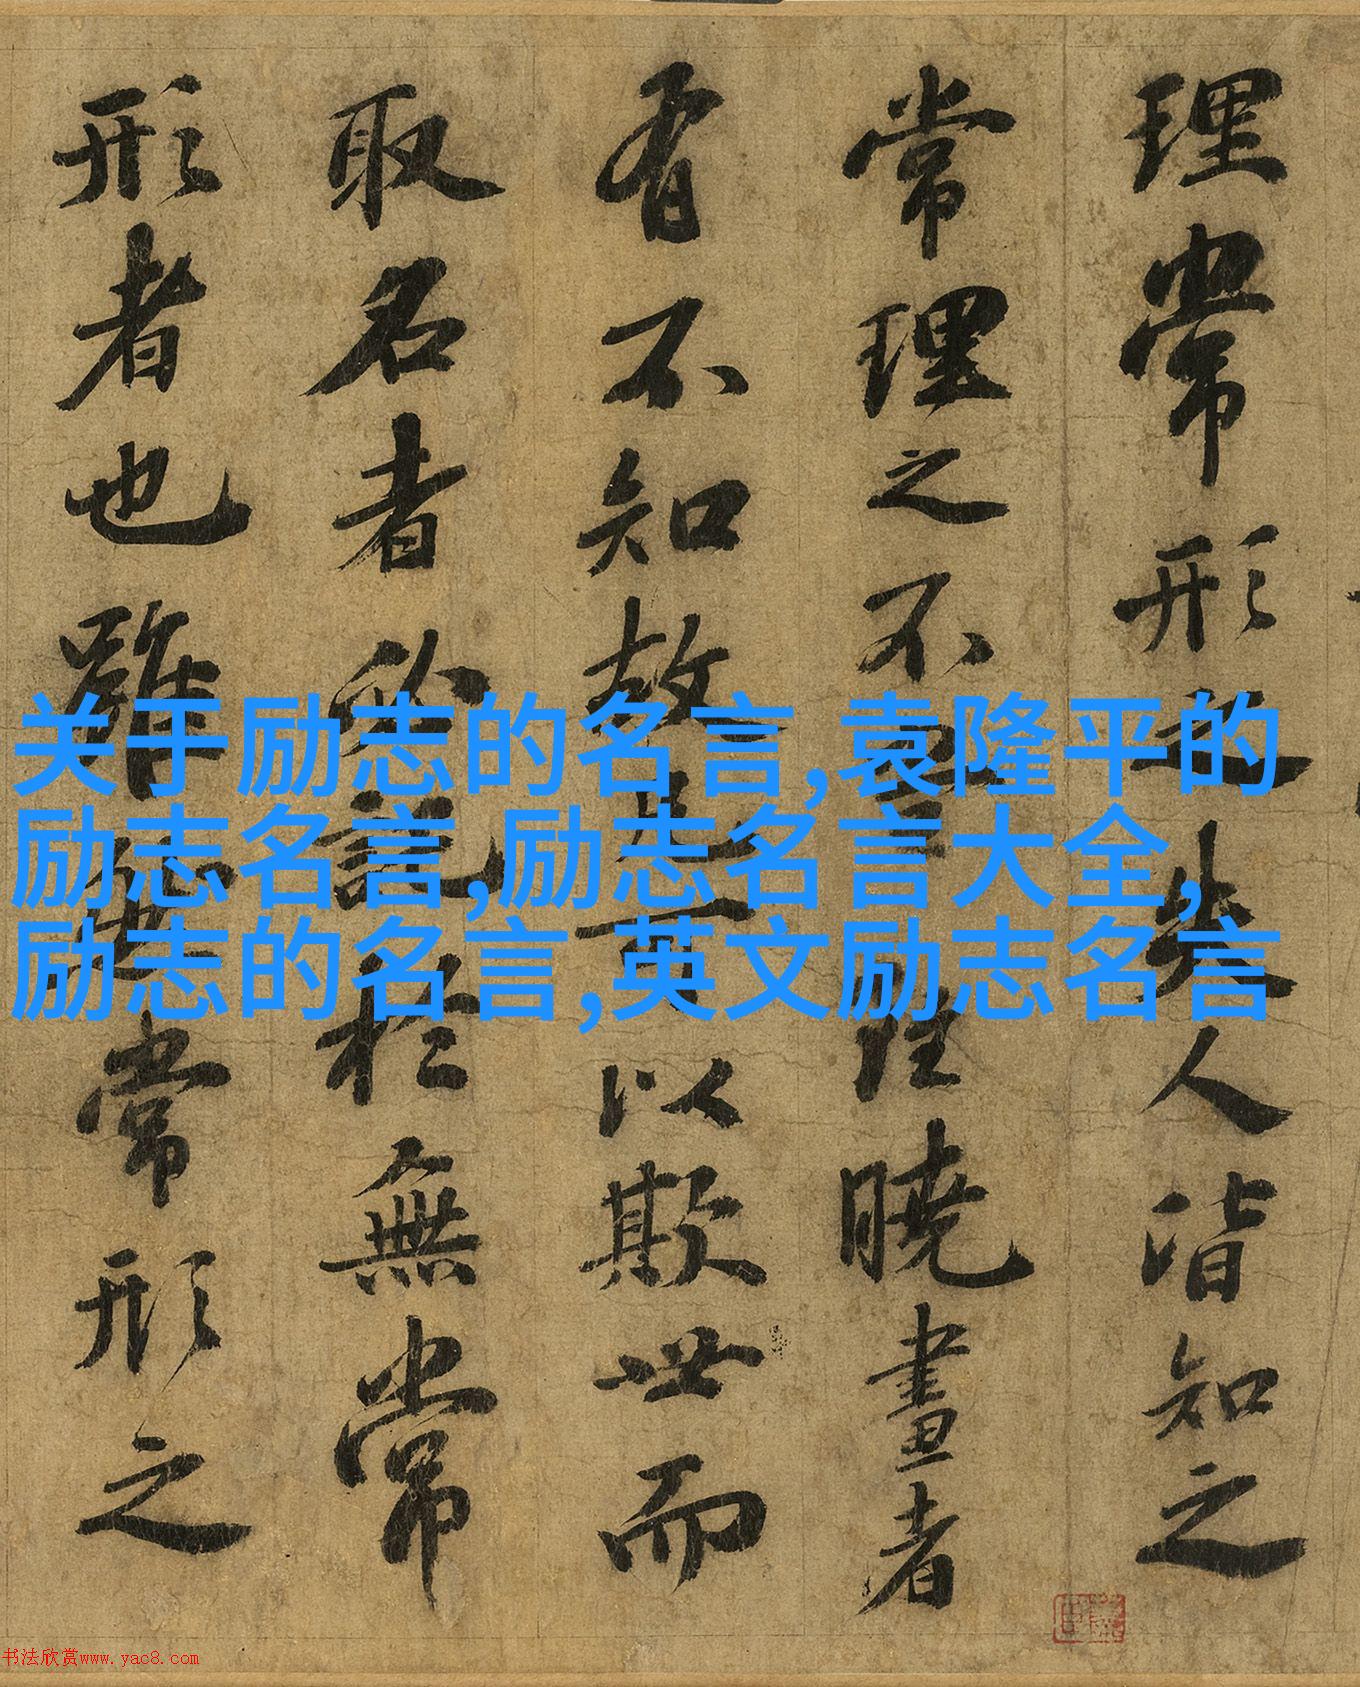 理常形之失人皆知之
常理之不曉畫者
有不知故凡可以欺世而
取名者必託於無常
形者也雖然常形之
关于励志的名言,袁隆平的
励志名言,励志名言大全,
励志的名言,英文励志名言
书法欣赏www.yac8.com